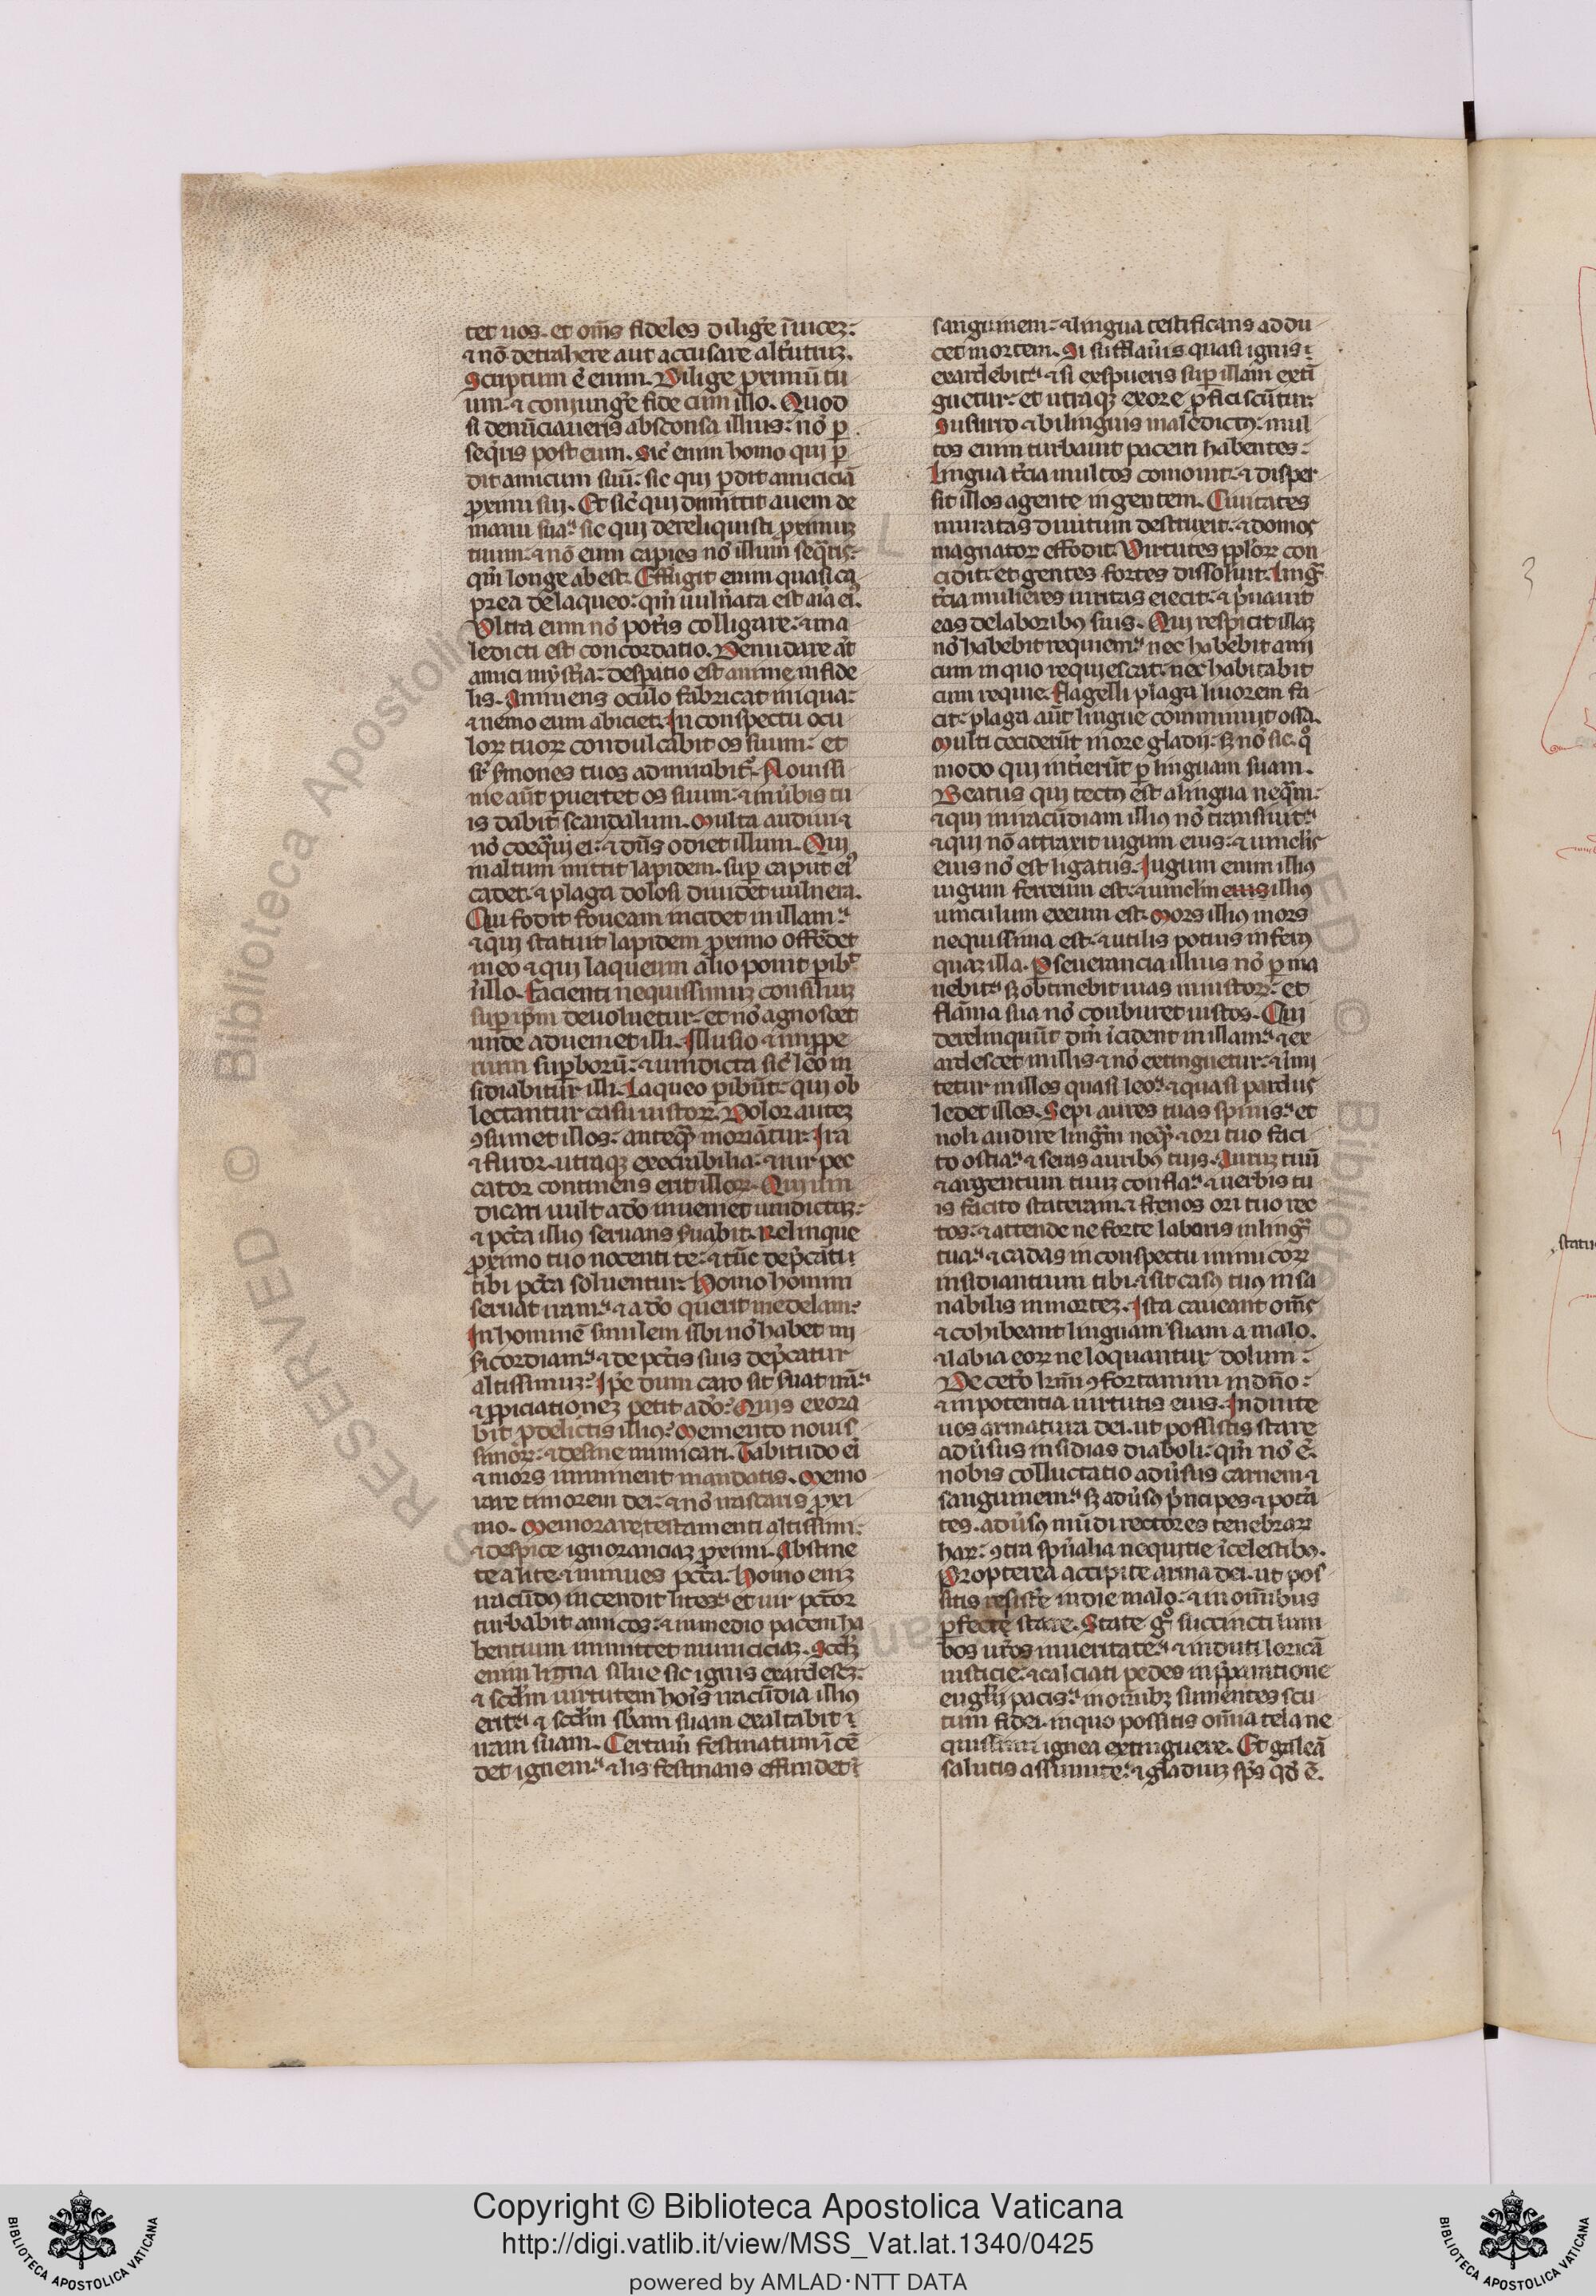 tet uos. et om̅s fideles dilig̅e i̅uicez:
⁊ no̅ detrahere aut accusare alt̓utruz.
Scriptum e̅ enim. Dilige proximu̅ tu
um. ⁊ coniung̅e fide cum illo. Quod
si denu̅ciaueris absconsa illius: no̅ p̱
seq̅ris post eum. Sic̅ enim homo qui p̱
dit amicum suu̅: sic qui p̱dit amicicia̅
proximi sui. Et sic̅ qui dimittit auem de
manu sua: sic qui dereliquisti proximuz
tuum: ⁊ no̅ eum capies no̅ illum seq̅ris:
qm̅ longe abest. Effugit enim quasi ca
prea de laqueo: qm̅ uuln̅ata est ai̅a ei᷒.
Vltra eum no̅ pot̅is colligare: ⁊ ma
ledicti est concordatio. Denudare a̅t
amici myst̅ia: desp̱atio est anime infide
lis. Annuens oculo fabricat iniqua:
⁊ nemo eum abiciet. In conspectu ocu
loꝝ tuoꝝ condulcabit os suum: et
sr̅ s̅mones tuos admirabit᷒. Nouissi
me aut̅ p̱uertet os suum: ⁊ in u̅bis tu
is dabit scandalum. Multa audiui ⁊
no̅ coeq̅ui ei: ⁊ dn̅s odiet illum. Qui
in altum mittit lapidem. sup̱ caput ei᷒
cadet: ⁊ plaga dolosi diuidet uulnera.
Qui fodit foueam incidet in illam:
⁊ qui statuit lapidem proximo offe̅det
in eo ⁊ qui laqueum alio ponit p̱ib̅t
i̅ illo. Facienti nequissimuz consiliuz
sup̱ ip̅m deuoluetur: et no̅ agnoscet
unde adueniet illi. Illusio ⁊ imprope
rium sup̱boru̅: ⁊ uindicta sic̅ leo in
sidiabitur illi. Laqueo p̱ibu̅t: qui ob
lectantur casu iustoꝝ. Dolor autez
ꝯsumet illos: anteq̅ moria̅tur. Ira
⁊ furor. utraqꝫ execrabilia: ⁊ uir pec
cator continens erit illoꝝ. Qui uin
dicari uult a do̅ inueniet uindictaz:
⁊ pc̅ta illi᷒ seruans s̅uabit. Relinque
proximo tuo nocenti te: ⁊ tu̅c dep̅cati
tibi pc̅ta soluentur. Homo homini
seruat iram: ⁊ a do̅ querit medelam:
In homine̅ similem sibi no̅ habet mi
s̅icordiam: ⁊ de pc̅tis suis dep̅catur
altissimuz: Ip̅e dum caro sit s̅uat ira̅:
⁊ propiciationez petit a do̅: Quis exora
bit pro delictis illi᷒: Memento nouis
simoꝝ: ⁊ desine inimicari. Tabitudo ei̅
⁊ mors imminent mandatis. Memo
rare timorem dei: ⁊ no̅ irascaris proxi
mo. Memorare testamenti altissimi:
⁊ despice ignoranciaz proximi. Abstine
te a lite ⁊ minues pc̅ta. Homo eniz
iracu̅d᷒ incendit lites: et uir pc̅tor
turbabit amicos: ⁊ in medio pacem ha
bentium immittet inimiciciaz. Scd̅z
enim ligna silue sic ignis exardescz:
⁊ scd̅m uirtutem hoi̅s iracu̅dia illi᷒
erit: ⁊ scd̅m sb̅am suam exaltabit i̅
iram suam. Certam̅ festinatum i̅ce̅
det ignem: ⁊ lis festinans effundet
sanguinem: ⁊ lingua testificans addu
cet mortem. Si sufflau̅is quasi ignis
exardebit᷒: ⁊ si exspueris sup̱ illam exti̅
guetur: et utraqꝫ ex ore p̱ficiscu̅tur:
Susurro ⁊ bilinguis maledict᷒: mul
tos enim turbauit pacem habentes:
Lingua t̅cia multos comouit: ⁊ disper
sit illos a gente in gentem. Ciuitates
muratas diuitum destruxit: ⁊ domos
magnatoꝝ effodit. Virtutes pp̅loꝝ con
cidit: et gentes fortes dissoluit. Ling̅
t̅cia mulieres uiritas eiecit: ⁊ p̅uauit
eas de laborib᷒ suis. Qui respicit illaz
no̅ habebit requiem: nec habebit ami
cum in quo requiescat: nec habitabit
cum requie. Flagelli plaga liuorem fa
cit: plaga aut̅ lingue comminuit ossa.
Multi cecideru̅t in ore gladii: sꝫ no̅ sic. qo̅
modo qui int̅ieru̅t p̱ linguam suam.
Beatus qui tect᷒ est a lingua neq̅m:
⁊ qui in iracu̅diam illi᷒ no̅ transiuit:
⁊ qui no̅ attraxit iugum eius: ⁊ uinclis
eius no̅ est ligatus. Iugum enim illi᷒
iugum ferreum est: ⁊ uinclm eius illi᷒
uinculum ereum est. Mors illi᷒ mors
nequissima est: ⁊ utilis potius infern᷒
quaz illa. P̱seuerancia illius no̅ p̱ma
nebit: sꝫ obtinebit uias iniustoꝝ: et
flam̅a sua no̅ conburet iustos. Qui
derelinquu̅t dm̅ i̅cident in illam: ⁊ ex
ardescet in illis ⁊ no̅ extinguetur: ⁊ i̅mi
tetur in illos quasi leo: ⁊ quasi pardus
ledet illos. Sepi aures tuas spinis: et
noli audire ling̅m neq̅. ⁊ ori tuo faci
to ostia: ⁊ seras aurib᷒ tuis. Auruz tuu̅
⁊ argentum tuuz confla: ⁊ uerbis tu
is facito stateram: ⁊ frenos ori tuo rec
tos: ⁊ attende ne forte labaris in ling̅
tua: ⁊ cadas in conspectu inimicoꝝ
insidiantium tibi ⁊ sit cas᷒ tu᷒ insa
nabilis in mortez. Ista caueant om̅s
⁊ cohibeant linguam suam a malo.
⁊ labia eoꝝ ne loquantur dolum:
De cet̅o fr̅m ꝯfortamini in dn̅o:
⁊ in potentia uirtutis eius. Induite
uos armatura dei. ut possitis stare
adu̅sus insidias diaboli: qm̅ no̅ e̅.
nobis colluctatio adu̅sus carnem ⁊
sanguinem: sꝫ adu̅s᷒ p̅ncipes ⁊ pot̅a
tes. adu̅s᷒ mu̅di rectores tenebraꝝ
haꝝ: ꝯtra spu̅alia nequitie i̅ celestib᷒.
Propterea accipite arma dei. ut pos
sitis resist̅e in die malo: ⁊ in om̅ibus
p̱fecte stare. State go̅ succincti lum
bos ur̅os in ueritate: ⁊ induti lorica̅
iusticie: ⁊ calciati pedes in p̅paratione
eugl̅ij pacis: in omnibꝫ sumentes scu
tum fidei. in quo possitis om̅ia tela ne
quissimi ignea extinguere. Et galea̅
salutis assumite: ⁊ gladiuz sp̅s qd̅ e̅.
statu
Copyright © Biblioteca Apostolica Vaticana
http://digi.vatlib.it/view/MSS_Vat.lat.1340/0425
powered by AMLAD·NTT DATA
BIBLIOTECA APOSTOLICA VATICANA
BIBLIOTECA APOSTOLICA VATICANA